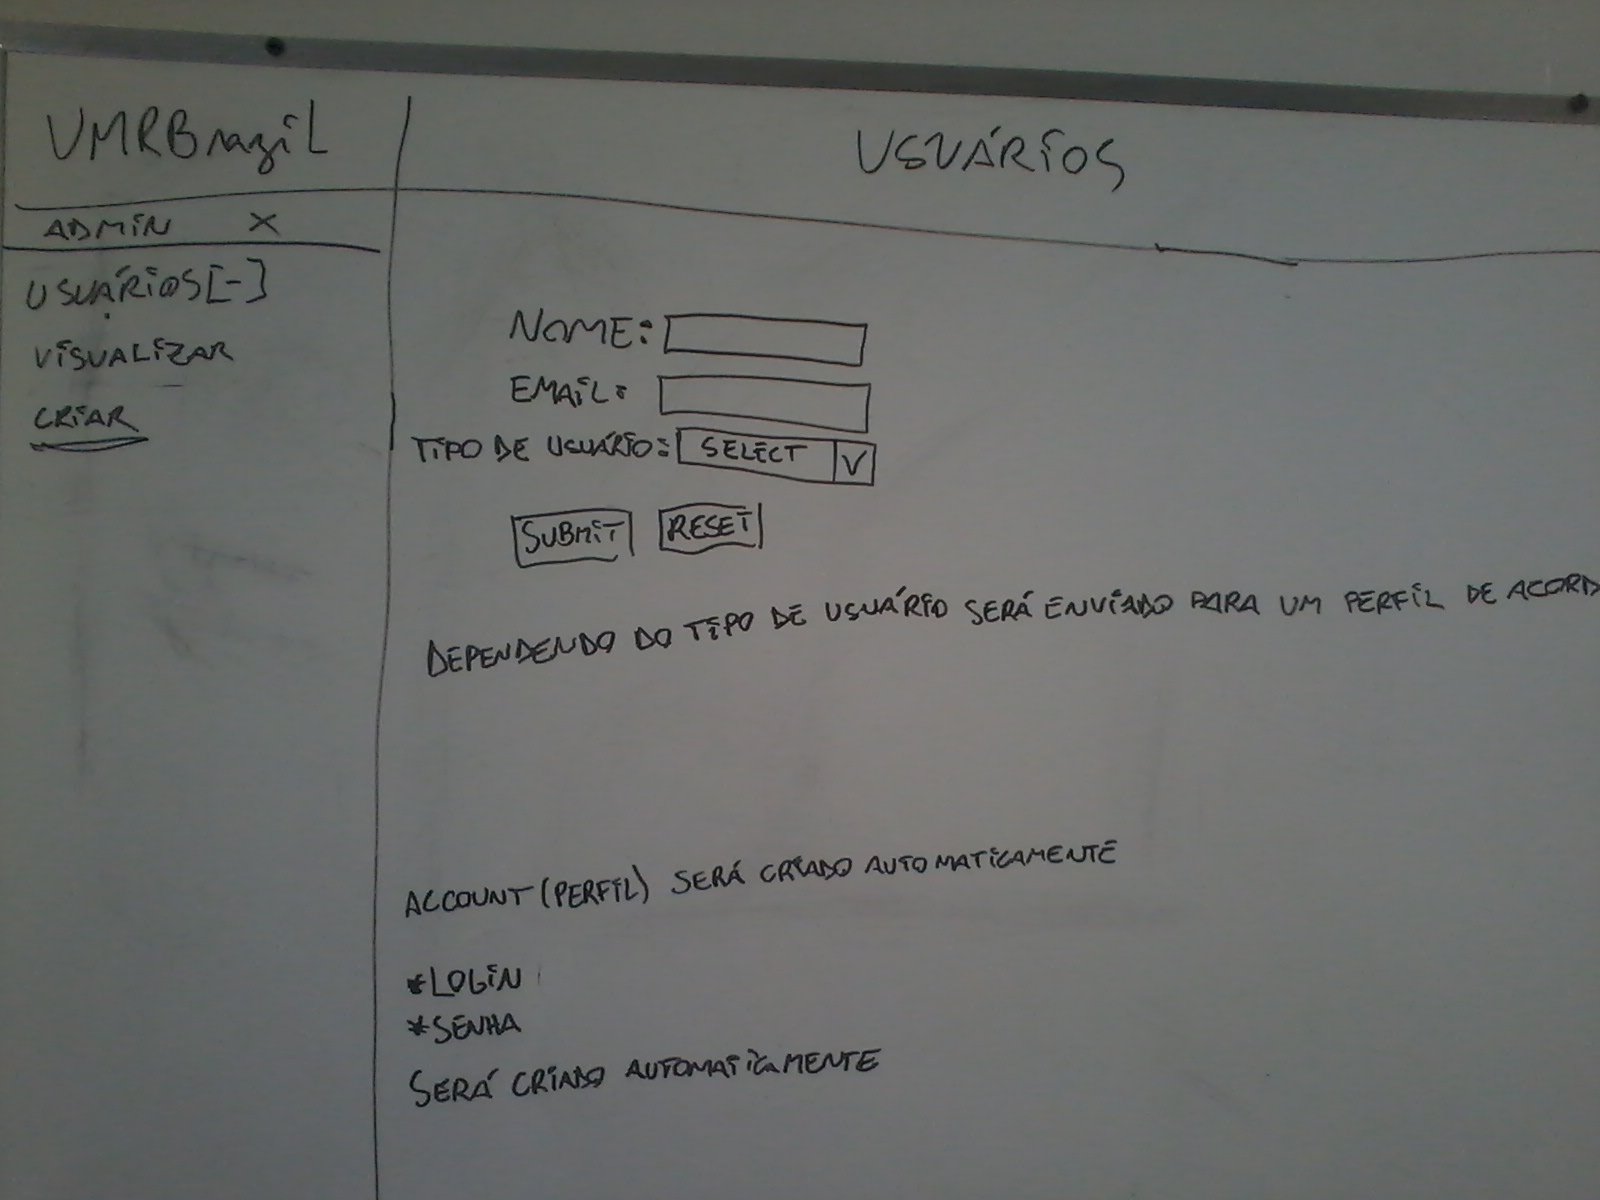 VMRBrazil
USUÁRIOS
ADMIN X
USUÁRIOS[-]
VISUALIZAR
CRIAR
NOME:
EMAIL:
TIPO DE USUÁRIO: SELECT V
SUBMIT RESET
DEPENDENDO DO TIPO DE USUÁRIO SERÁ ENVIADO PARA UM PERFIL DE ACORD
ACCOUNT (PERFIL) SERÁ CRIADO AUTOMATICAMENTE
*LOGIN
*SENHA
SERÁ CRIADO AUTOMATICAMENTE